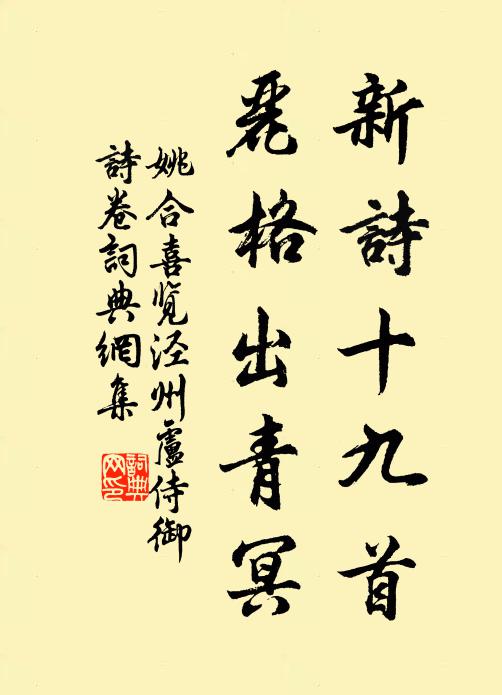 新詩十九首
麗格出青冥
姚合喜覽涇州盧侍御
詩卷詞典網集
詞典網印